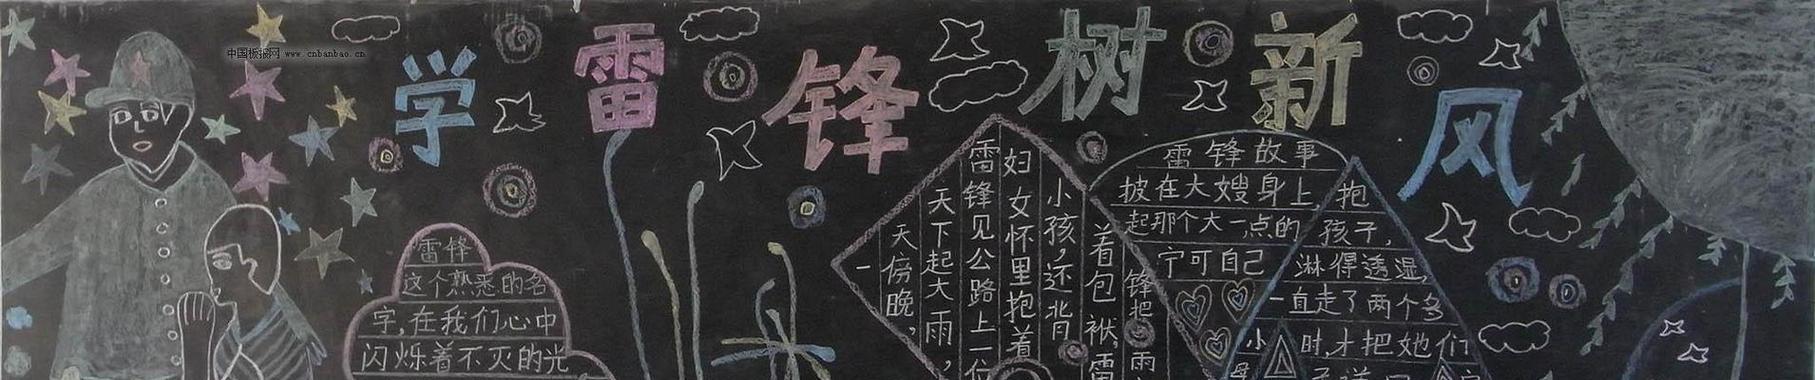 中国板报网 www.cnbanbao.cn
学雷锋树新风
雷锋
这个熟悉的名
字,在我们心中
闪烁着不灭的光
一
天傍晚,
天下起大雨,
雷锋见公路上一位
妇女怀里抱着
小孩,还背
着包袱,雷
锋把雨
雷锋故事
披在大嫂身上,抱
起那个大一点的孩子,
宁可自己淋得透湿,
一直走了两个多
小时,才把她们